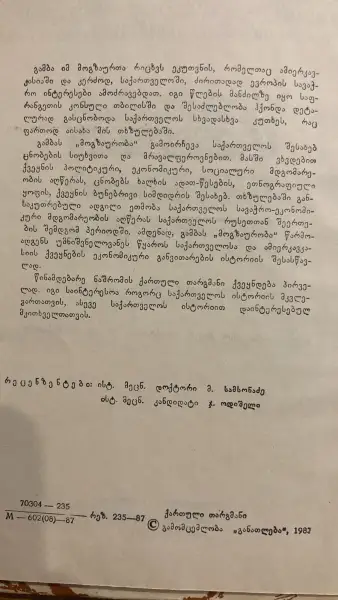 გამბა იმ მოგზაურთა რიცხვს ეკუთვნის, რომელთაც ამიერკავ-
კასიაში და კერძოდ, საქართველოში, ძირითადად ევროპის სავაჭ-
რო ინტერესები ამოძრავებდათ. იგი წლების მანძილზე იყო საფ-
რანგეთის კონსული თბილისში და შესაძლებლობა ჰქონდა დეტა-
ლურად გასცნობოდა საქართველოს სხვადასხვა კუთხეს, რაც
ფართოდ აისახა მის თხზულებაში.
გამბას „მოგზაურობა“ გამოირჩევა საქართველოს შესახებ
ცნობების სიუხვითა და მრავალფეროვნებით. მასში ვხვდებით
ქვეყნის პოლიტიკური, ეკონომიკური, სოციალური მდგომარე-
ობის აღწერას, ცნობებს ხალხის ადათ-წესების, ეთნოგრაფიული
ყოფის, ქვეყნის ბუნებრივი სიმდიდრის შესახებ. თხზულებაში გან-
საკუთრებული ადგილი ეთმობა საქართველოს სავაჭრო-ეკონომი-
კური მდგომარეობის აღწერას საქართველოს რუსეთთან შეერთე-
ბის შემდგომ პერიოდში. ამდენად, გამბას „მოგზაურობა“ წარმო-
ადგენს უმნიშვნელოვანეს წყაროს საქართველოსა და ამიერკავკა-
სიის ქვეყნების ეკონომიკური განვითარების ისტორიის შესასწავ-
ლად.
წინამდებარე ნაშრომის ქართული თარგმანი ქვეყნდება პირვე-
ლად. იგი საინტერესოა როგორც საქართველოს ისტორიის მკვლე-
ვართათვის, ასევე საქართველოს ისტორიით დაინტერესებულ
მკითხველთათვის.
რეცენზენტები: ისტ. მეცნ. დოქტორი მ. სამსონაძე
ისტ. მეცნ. კანდიდატი ჯ. ოდიშელი
70304 — 235
M — 602(08)—87 რეზ. 235—87
ქართული თარგმანი
© გამომცემლობა „განათლება“, 1987